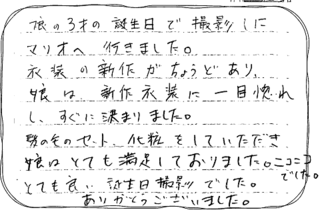 娘の3才の誕生日で撮影しに
マリオへ行きました。
衣装の新作がちょうどあり、
娘は新作衣装に一目惚れ
し、すぐに決まりました。
髪のセット、化粧をしていただき
娘はとても満足しておりました。ニコニコ
でした。
とても良い誕生日撮影でした。
ありがとうございました。